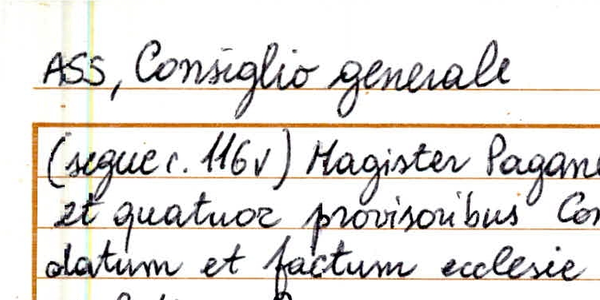 ASS, Consiglio generale
(segue c. 116v) Magister Pagane
et quatuor provisoribus Con
datum et factum ecclesie